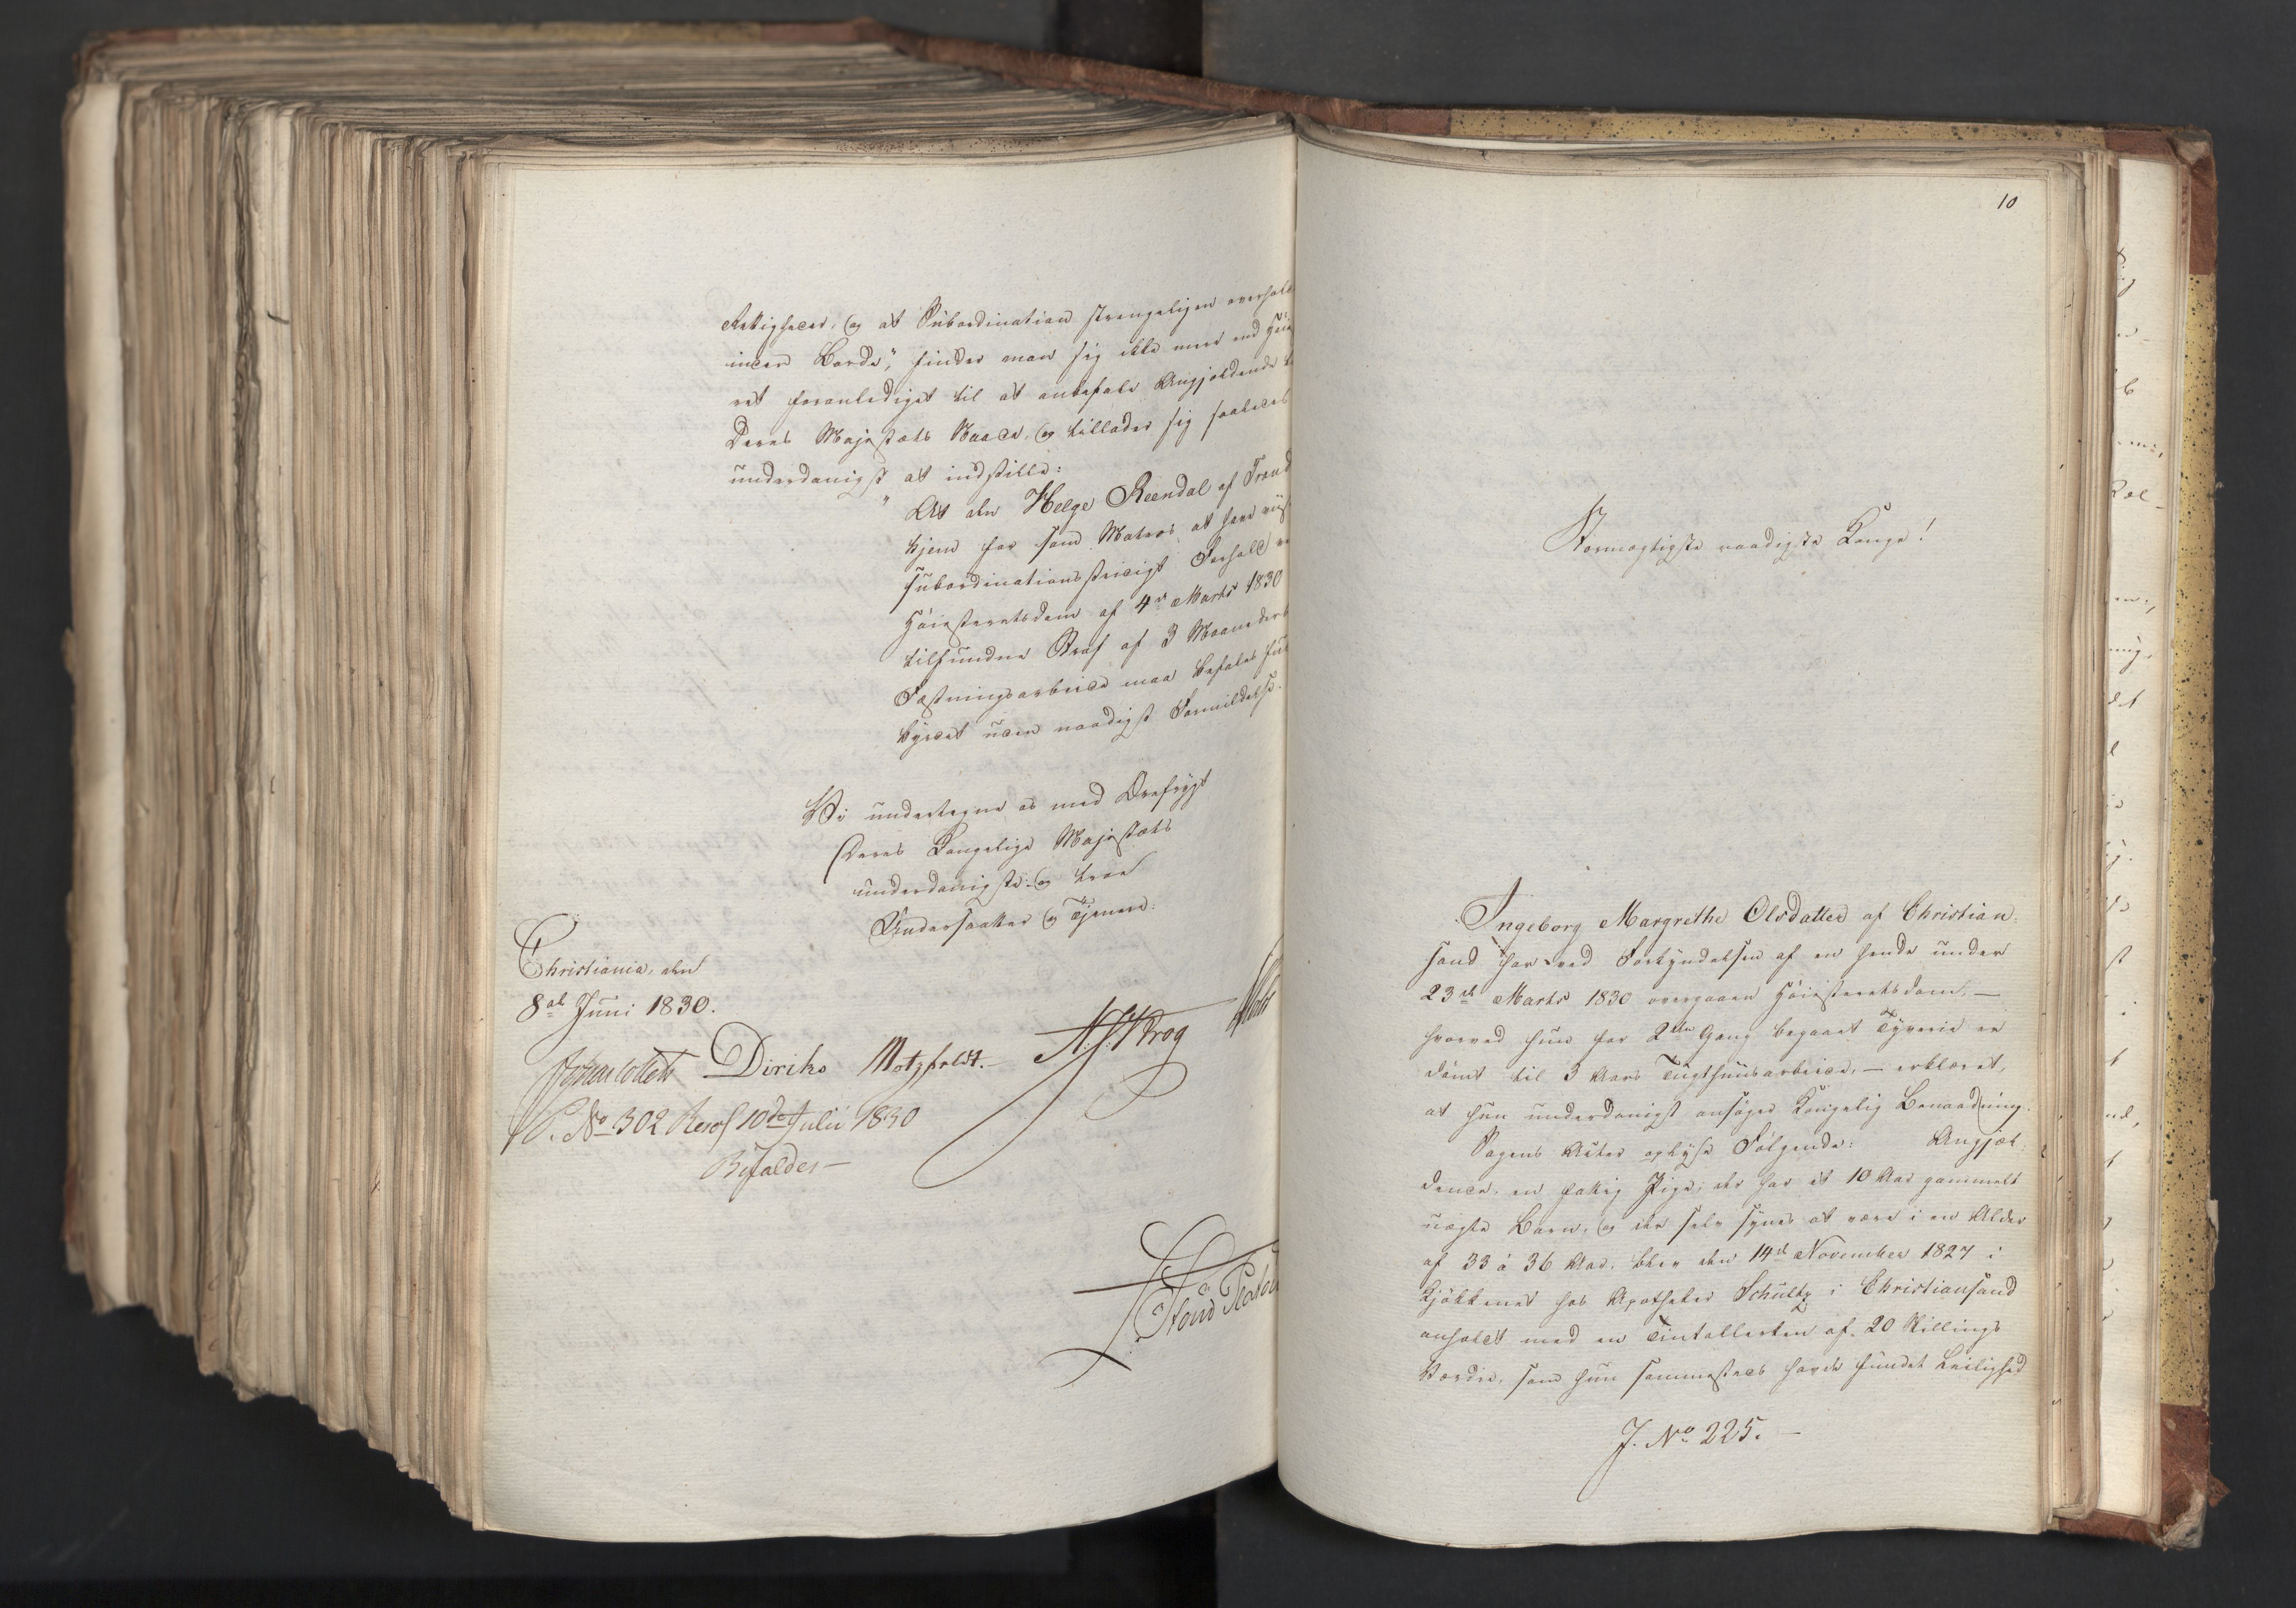 Rettigheder, og at Subordination strengeligen overhold
inden Borde", finder man sig ikke meer end Høie
ret foranlediget til at anbefale Angjeldende t
Deres Majestæts Naade, og tillader sig saaledes
underdanigst at indstille:
" At den Helge Reendal af Trond
hjem for som Matros at have viist
subordinationsstridigt Forhold ve
Høiesteretsdom af 4de Marts 1830
tilfundne Straf af 3 Maaneders
Fæstningsarbeide maa befales ful
byrdet uden naadigst Formildelse.
Vi undertegne os med Ærefrygt
Deres Kongelige Majestæts
underdanigste og troe
Undersaatter og Tjenere.
Christiania, den
8de Juni 1830.
Diriks Motzfeldt. Krog Holst
P. No 302 Resol 10de Julii 1830
Bifaldes
10
Stormægtigste naadigste Konge!
Ingeborg Margrethe Olsdatter af Christian-
sand har ved Forkyndelsen af en hende under
23de Marts 1830 overgaaen Høiesteretsdom, —
hvorved hun for 2den Gang begaaet Tyverie er
dømt til 3 Aars Tugthuusarbeide, — erklæret,
at hun underdanigst ansøger Kongelig Benaadning.
Sagens Akter oplyse Følgende: Angjel-
dende, en fattig Pige, der har et 10 Aar gammelt
uægte Barn, og der selv synes at være i en Alder
af 33 à 36 Aar, blev den 14de November 1827 i
Kjøkkenet hos Apotheker Schultz i Christiansand
anholdt med en Tintallerken af 20 Skillings
Værdie, som hun sammesteds havde fundet Leilighed
J. No 225. —